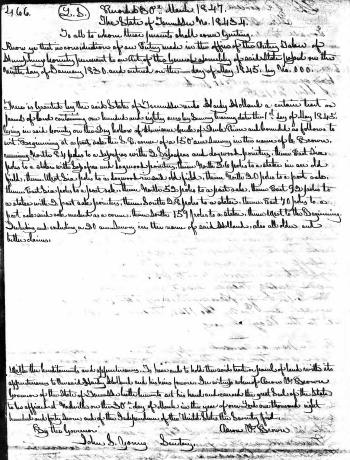 466. L.S. Recorded 30th March 1847.
The State of Tennessee No. 12434.
To all to whom these presents shall come Greeting.
Know ye that in consideration of an Entry made in the office of the Entry Taker of
County pursuant to an Act of the General Assembly of said State passed on the
day of January 1830 and entered on the day of May 1845, by No. 000.
There is Granted by the said State of Tennessee unto Hardy Holland a certain tract or
parcel of land containing one hundred and eighty acres by Survey bearing date the 1st day of May 1845.
lying in said County on the Dry hollow of waters of Duck River and bounded as follows to
wit. Beginning at a post oak the S.E. corner of a 150 acre Survey in the name of Brown,
running North 84 poles to a with 2 and dogwood pointers, thence East
poles to a stake with and dogwood pointers, thence North 36 poles to a stake in an old
field, thence West six poles to a dogwood in said old field, thence North 20 poles to a post oak,
thence East six poles to a post oak, thence North 52 poles to a post oak, thence East 92 poles to
a stake with 2 post oak pointers, thence South 28 poles to a stake, thence East 70 poles to a
post oak and oak marked as a corner, thence South 159 poles to a stake, thence West to the Beginning
Including and excluding a 20 acre Survey in the name of said Holland, also all older and
better claims.
With the hereditaments and appurtenances. To have and to hold the said tract or parcel of land with its
appurtenances to the said Hardy Holland and his heirs forever. In witness whereof Aaron V. Brown
Governor of the State of Tennessee hath hereunto set his hand and caused the great Seal of the State
to be affixed at Nashville on the 30th day of March in the year of our Lord one thousand eight
hundred and forty seven and of the Independence of the United States the Seventy first.
By the Governor. Aaron V. Brown
John S. Young Secretary